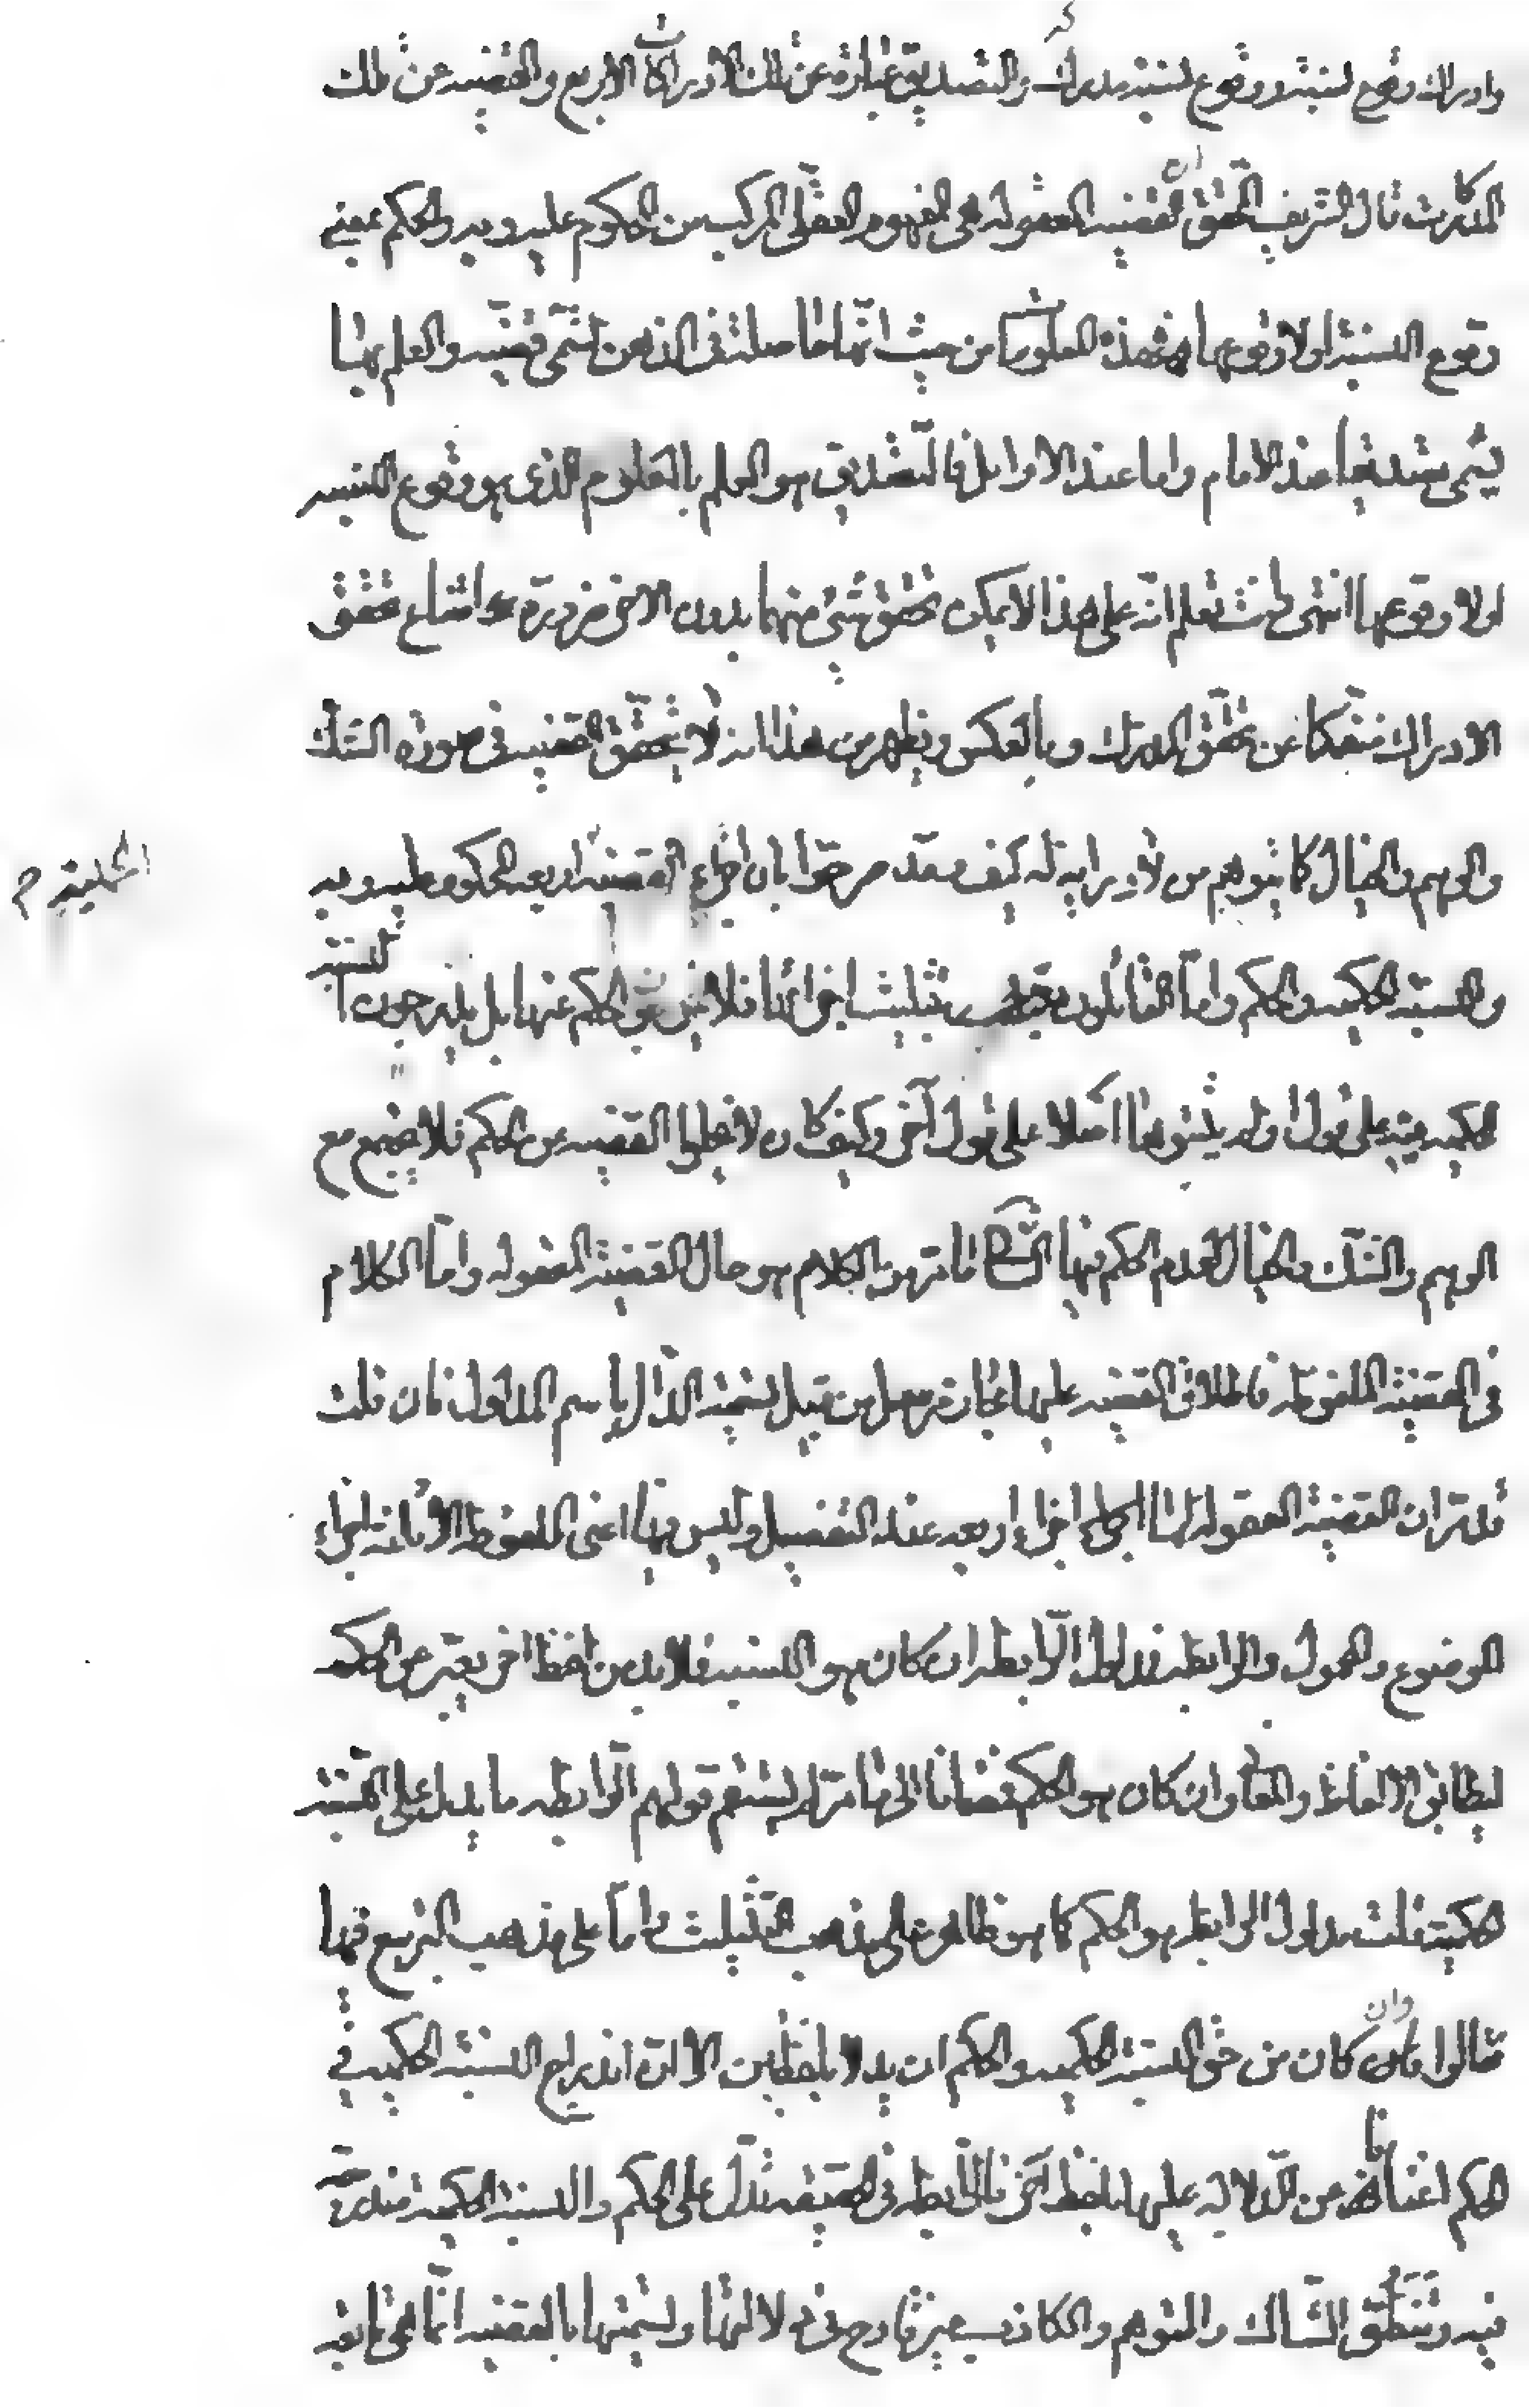 وادراك وقوع نسبة او لا وقوع نسبة مدركة والتصديق عبارة عن تلك الادراكات الاربع والقضيه عن تلك
المدركات قال الشريف المحقق ان القضيه المعقوله هى المفهوم العقلى المركب من المحكوم عليه وبه والحكم بمعنى
وقوع النسبة او لا وقوعها فهذه المعلومات من حيث انها حاصلة فى الذهن تسمى قضية والعلم بها
يسمى تصديقا عند الامام واما عند الاوايل فالتصديق هو العلم بالمعلوم الذى هو وقوع النسبه
او لا وقوعها انتهى وانت تعلم انه على هذا لا يمكن تحقق شئ منهما بدون الاخر ضرورة امتناع تحقق
الادراك منفكا عن تحقق المدرك وبالعكس ويظهر من هذا انه لا يتحقق القضيه فى صورة الشك
والوهم والخيال كما يتوهم من لا دراية له كيف وقد صرحوا بان اجزاء القضية اربعه المحكوم عليه وبه
الحملية م
والنسبة الحكميه والحكم واما القائلون بتثليث اجزائها فلا يخرجون الحكم عنها بل يدرجون النسبة
الحكميه فيه على قول ولم يثبتوها اصلا على قول آخر وكيف كان لا يخلوا القضيه عن الحكم فلا يجتمع مع
الوهم والشك والخيال لعدم الحكم فيها ما مر هو الكلام هو حال القضية المعقوله واما الكلام
فى القضية الملفوظه فاطلاق القضيه عليها مجاز مرسل من قبيل تسمية الدال باسم المدلول فان قلت
قد مر ان القضية المعقوله لها اجزاء اربعه عند التفصيل وليس فيها اعنى الملفوظه الا ثلثة اجزاء
الموضوع والمحمول والرابطه فمدلول الرابطه ان كان هو النسبه فلا بد من لفظ اخر يعبر عن الحكم
ليطابق الالفاظ والمعانى وان كان هو الحكم فمضافا الى ما مر لم يستقم قولهم الرابطه ما يدل على النسبة
الحكمية قلت مدلول الرابطه هو الحكم كما هو ظاهر على مذهب التثليث واما على مذهب التربيع فلما
قالوا وان كان من حق النسبة الحكميه والحكم ان يدلا بلفظين الا ان اندراج النسبة الحكميه فى
الحكم اغنانا عن الدلاله عليها بلفظ آخر فالرابطه فى الحقيقه تدل على الحكم والنسبة الحكمية مندرجة
فيه وتنطق الشاك والمتوهم والكاذب غير قادح فى دلالتها وتسميتها بالقضيه انما هى تابعة